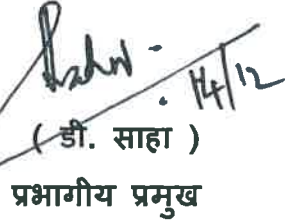 14/12
( डी. साहा )
प्रभागीय प्रमुख